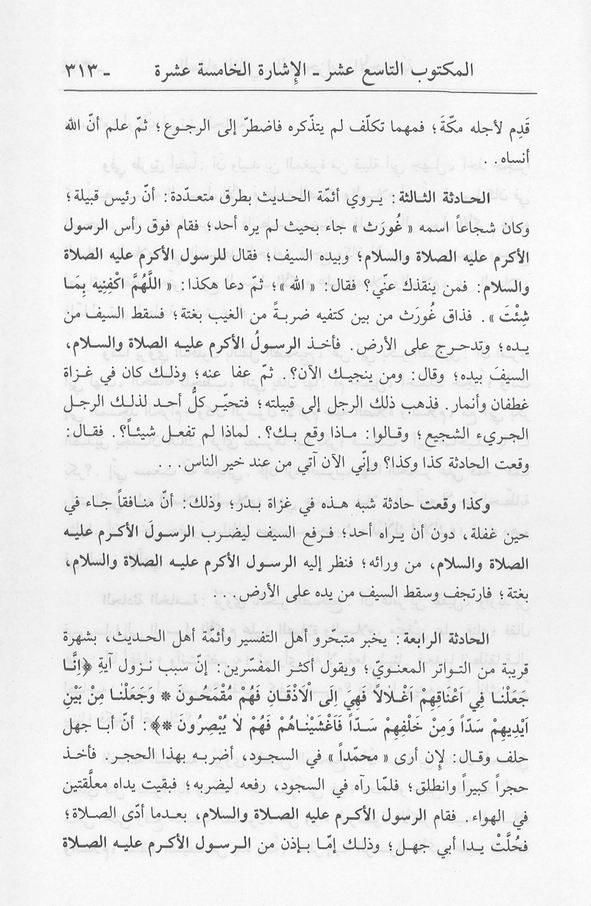 المكتوب التاسع عشر ـ الإشارة الخامسة عشرة ـ ٣١٣
قَدِم لأجله مكّةَ؛ فمهما تكلّف لم يتذكره فاضطرّ إلى الرجوع؛ ثمّ علم أنّ الله
أنساه. .
الحادثة الثالثة: يروي أئمّة الحديث بطرق متعدّدة: أنّ رئيس قبيلة؛
وكان شجاعاً اسمه « غُورَث » جاء بحيث لم يره أحد؛ فقام فوق رأس الرسول
الأكرم عليه الصلاة والسلام؛ وبيده السيف؛ فقال للرسول الأكرم عليه الصلاة
والسلام: فمن ينقذك عنّي؟ فقال: « الله »؛ ثمّ دعا هكذا: « اللَّهُمَّ اكْفِنِيهِ بِمَا
شِئْتَ ». فذاق غُورَث من بين كتفيه ضربةً من الغيب بغتة؛ فسقط السيف من
يده؛ وتدحرج على الأرض. فأخذ الرسولُ الأكرم عليه الصلاة والسلام،
السيفَ بيده؛ وقال: ومن ينجيك الآن؟. ثمّ عفا عنه؛ وذلك كان في غزاة
غطفان وأنمار. فذهب ذلك الرجل إلى قبيلته؛ فتحيّر كلُّ أحد لذلك الرجل
الجريء الشجيع؛ وقالوا: ماذا وقع بك؟. لماذا لم تفعل شيئاً؟. فقال:
وقعت الحادثة كذا وكذا؟ وإنّي الآن آتي من عند خير الناس. . .
وكذا وقعت حادثة شبه هذه في غزاة بدر؛ وذلك: أنّ منافقاً جاء في
حين غفلة، دون أن يراه أحد؛ فرفع السيف ليضرب الرسولَ الأكرم عليه
الصلاة والسلام، من ورائه؛ فنظر إليه الرسول الأكرم عليه الصلاة والسلام،
بغتة؛ فارتجف وسقط السيف من يده على الأرض. . .
الحادثة الرابعة: يخبر متبحّرو أهل التفسير وأئمّة أهل الحديث، بشهرة
قريبة من التواتر المعنويّ؛ ويقول أكثر المفسّرين: إنّ سبب نزول آيةِ ﴿اِنَّا
جَعَلْنَا فِي اَعْنَاقِهِمْ اَغْلاَلاً فَهِيَ اِلَى الْاَذْقَانِ فَهُمْ مُقْمَحُونَ * وَجَعَلْنَا مِنْ بَيْنِ
اَيْدِيهِمْ سَدّاً وَمِنْ خَلْفِهِمْ سَدّاً فَاَغْشَيْنَاهُمْ فَهُمْ لاَ يُبْصِرُونَ *﴾: أنّ أبا جهل
حلف وقال: لإن أرى « محمّداً » في السجود، أضربه بهذا الحجر. فأخذ
حجراً كبيراً وانطلق؛ فلمّا رآه في السجود، رفعه ليضربه؛ فبقيت يداه معلَّقتين
في الهواء. فقام الرسول الأكرم عليه الصلاة والسلام، بعدما أدّى الصلاة؛
فحُلَّتْ يدا أبي جهل؛ وذلك إمّا بإذن من الرسول الأكرم عليه الصلاة